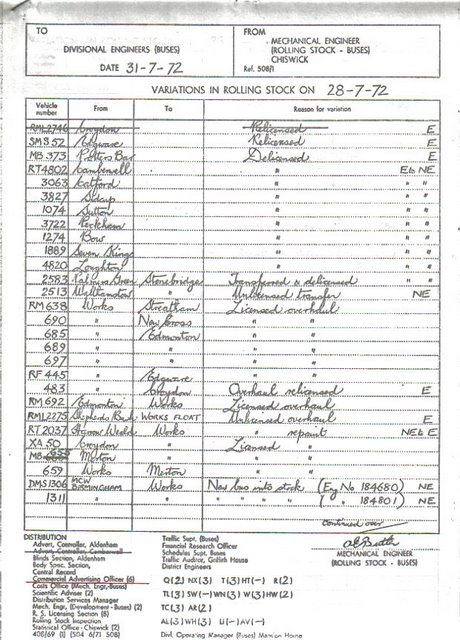 TO
DIVISIONAL ENGINEERS (BUSES)
DATE 31-7-72
FROM
MECHANICAL ENGINEER
(ROLLING STOCK - BUSES)
CHISWICK
Ref. 508/1
VARIATIONS IN ROLLING STOCK ON 28-7-72
Vehicle number From To Reason for variation
RML2746 Croydon Relicensed E
SMS 52 Edgware Relicensed E
MB 373 Potters Bar Delicensed E
RT4802 Camberwell " E to NE
3063 Catford " " "
3827 Sidcup " " "
1074 Sutton " " "
3722 Peckham " " "
1274 Bow " " "
1889 Seven Kings " " "
4820 Loughton " " "
2583 Palmers Green Stonebridge Transferred & delicensed " "
2513 Walthamstow Unlicensed transfer NE
RM 638 Works Streatham Licensed overhaul
690 " New Cross " "
685 " Edmonton " "
689 " " " "
697 " " " "
RF 445 " Edgware " "
483 " Croydon Overhaul relicensed E
RM 692 Edmonton Works Licensed overhaul
RML2275 Shepherds Bush WORKS FLOAT Unlicensed overhaul E
RT 2037 Works " repaint NE & E
XA 50 Croydon " Licensed "
MB 655 Merton " " "
659 Works Merton " "
DMS1306 MCW BIRMINGHAM Works New bus into stock (Eng No 184680) NE
1311 " " " " " " ( " 184801) NE
Continued over
DISTRIBUTION
Advert, Controller, Aldenham
Advert, Controller, Camberwell
Blinds Section, Aldenham
Body Spes. Section,
Central Record
Commercial Advertising Officer (6)
Costs Office (Mech. Engr.-Buses)
Scientific Adviser (2)
Distribution Services Manager
Mech. Engr, (Development - Buses) (2)
R. S. Licensing Section (8)
Rolling Stock Inspection
Statistical Office - Chiswick (2)
408/69 (1) (504 6/71 508)
Traffic Supt. (Buses)
Financial Research Officer
Schedules Supt. Buses
Traffic Auditor, Griffith House
District Engineers
Q(2) NX(3) T(3) HT(-) R(2)
TL(3) SW(-) WN(3) W(3) HW(2)
TC(3) AR(2)
AL(3) WH(3) U(-) AV(-)
Divl. Operating Manager (Buses) Mansion House
MECHANICAL ENGINEER
(ROLLING STOCK - BUSES)